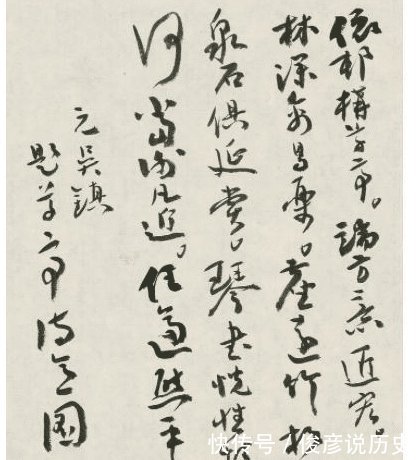 依邨構草亭。端方意匠宏。
林深禽鳥樂。塵遠竹松
泉石俱延賞。琴書悅性
何當謝凡近。任適慰平
元吳鎮
題草亭詩意圖
快传号/俊彦说历史